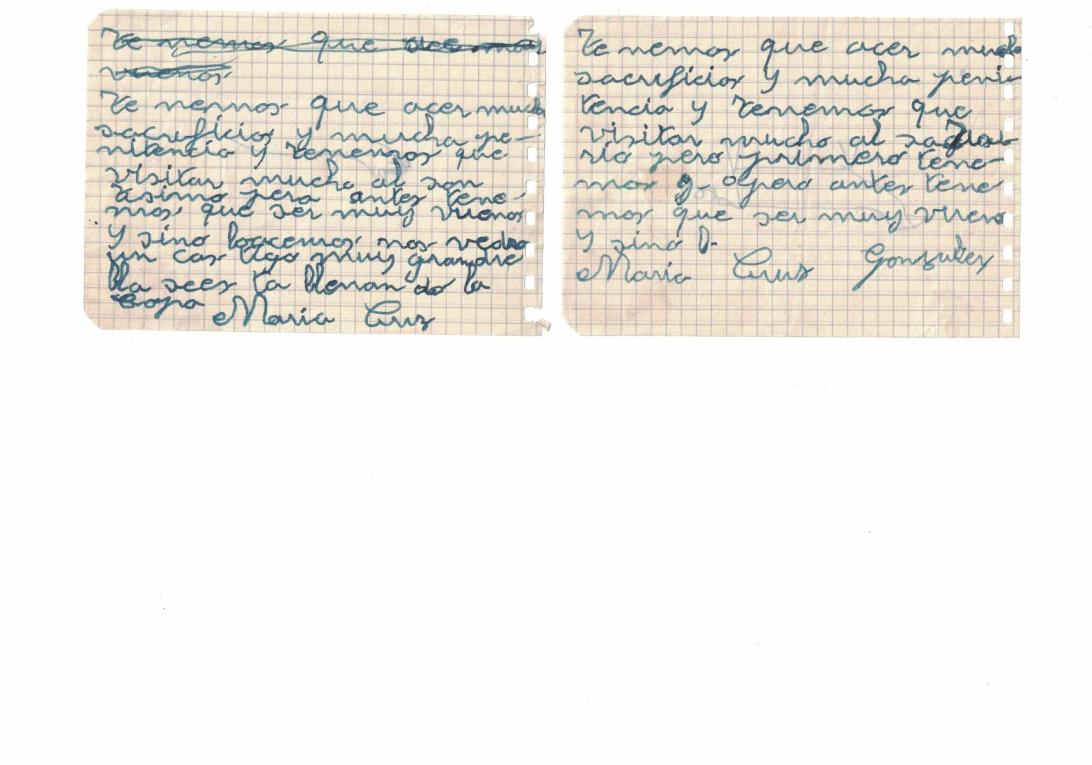 Te nemos que
vuenos
Te nemos que acer mucho
sacrificios y mucha pe-
nitencia y tenemos que
visitar mucho al san
tisimo pero antes tene-
mos que ser muy vuenos
y sino lo acemos nos vedra
un cas tigo muy grande
lla sees ta llenan do la
copa
Maria Cruz
Te nemos que acer mucho
sacrificios y mucha peni-
tencia y tenemos que
visitar mucho al sagra-
rio pero primero tene-
mos q opero antes tene
mos que ser muy vueno
y sino l
Maria Cruz Gonzalez